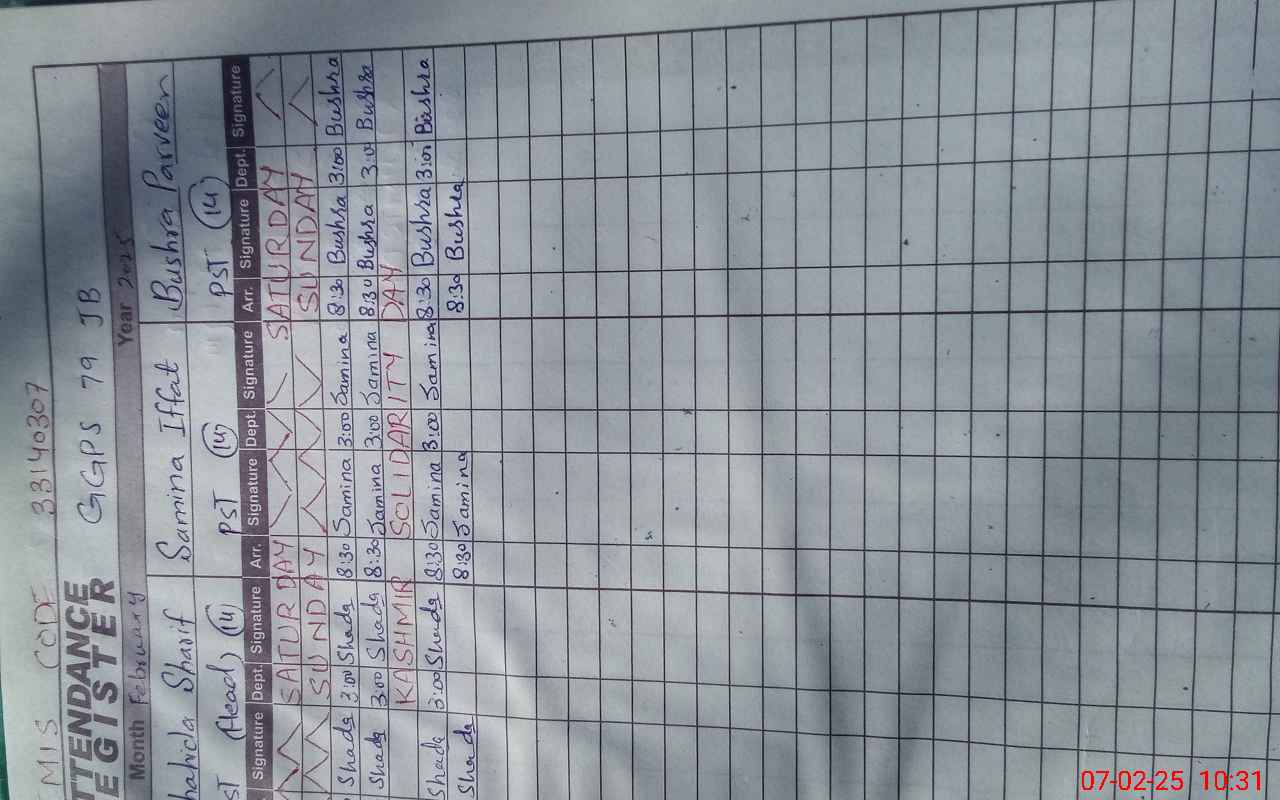 EMIS CODE 33140307
ATTENDANCE REGISTER GGPS 79 JB
Month February Year 2025
Shahida Sharif Samina Iffat Bushra Parveen
PST (Head) (14) PST (14) PST (14)
Arr. Signature Dept. Signature Arr. Signature Dept. Signature Arr. Signature Dept. Signature
SATURDAY SATURDAY
SUNDAY SUNDAY
Shada 3:00 Shada 8:30 Samina 3:00 Samina 8:30 Bushra 3:00 Bushra
Shada 3:00 Shada 8:30 Samina 3:00 Samina 8:30 Bushra 3:00 Bushra
KASHMIR SOLIDARITY DAY
Shada 3:00 Shada 8:30 Samina 3:00 Samina 8:30 Bushra 3:00 Bushra
Shada 8:30 Samina 8:30 Bushra
07-02-25 10:31